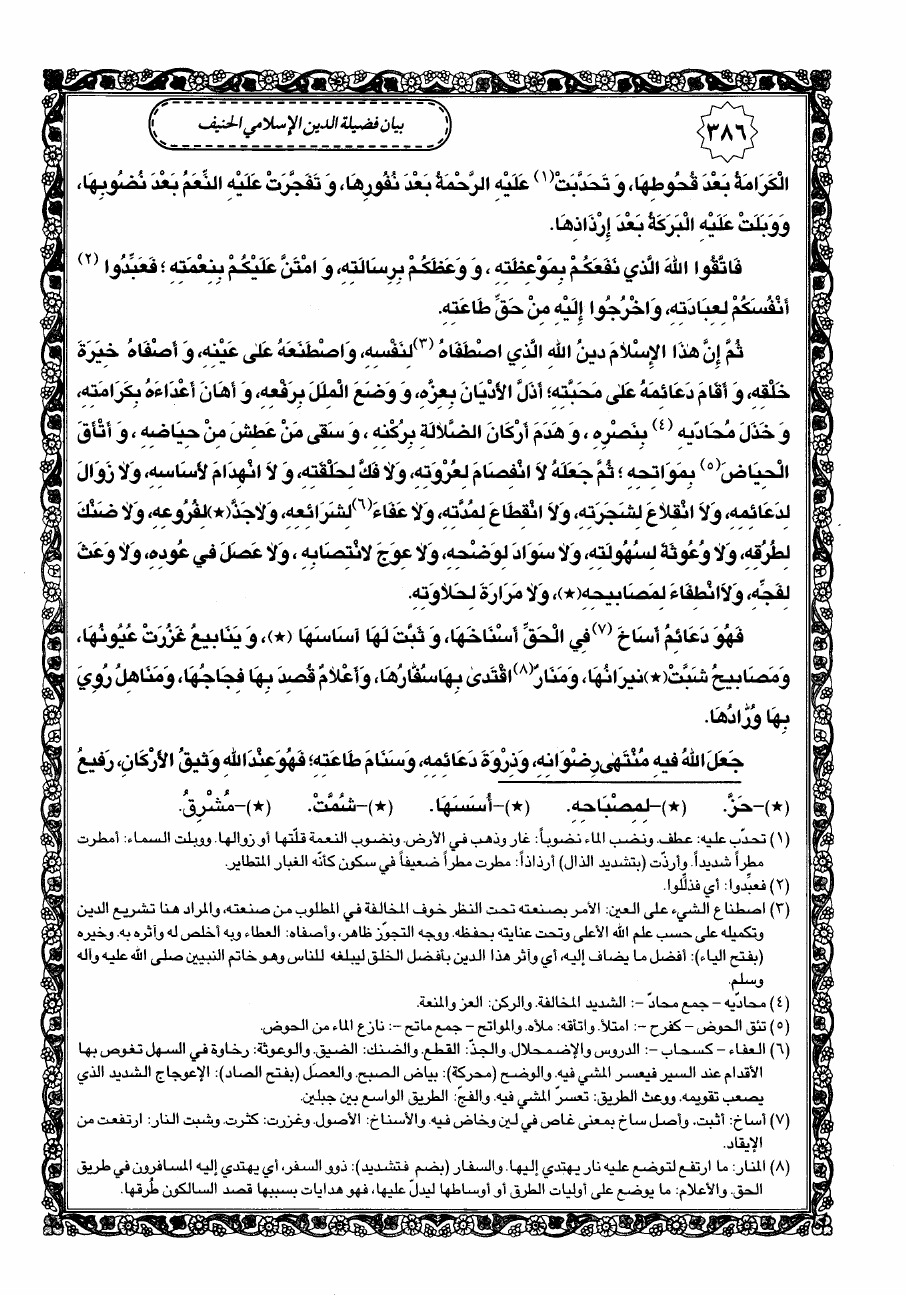 ٣٨٦
بيان فضيلة الدين الإسلامي الحنيف
الْكَرَامَةُ بَعْدَ قُحُوطِهَا، وَ تَحَدَّبَتْ(١) عَلَيْهِ الرَّحْمَةُ بَعْدَ نُفُورِهَا، وَ تَفَجَّرَتْ عَلَيْهِ النِّعَمُ بَعْدَ نُضُوبِهَا،
وَوَبَلَتْ عَلَيْهِ الْبَرَكَةُ بَعْدَ إِرْذَاذِهَا.
فَاتَّقُوا اللهَ الَّذِي نَفَعَكُمْ بِمَوْعِظَتِهِ، وَ وَعَظَكُمْ بِرِسَالَتِهِ، وَ امْتَنَّ عَلَيْكُمْ بِنِعْمَتِهِ؛ فَعَبِّدُوا (٢)
أَنْفُسَكُمْ لِعِبَادَتِهِ، وَاخْرُجُوا إِلَيْهِ مِنْ حَقِّ طَاعَتِهِ.
ثُمَّ إِنَّ هٰذَا الإِسْلَامَ دِينُ اللهِ الَّذِي اصْطَفَاهُ (٣)لِنَفْسِهِ، وَاصْطَنَعَهُ عَلىٰ عَيْنِهِ، وَ أَصْفَاهُ خِيَرَةَ
خَلْقِهِ، وَ أَقَامَ دَعَائِمَهُ عَلىٰ مَحَبَّتِهِ؛ أَذَلَّ الأَدْيَانَ بِعِزِّهِ، وَ وَضَعَ الْمِلَلَ بِرَفْعِهِ، وَ أَهَانَ أَعْدَاءَهُ بِكَرَامَتِهِ،
وَ خَذَلَ مُحَادِّيهِ (٤) بِنَصْرِهِ، وَ هَدَمَ أَرْكَانَ الضَّلَالَةِ بِرُكْنِهِ، وَ سَقَى مَنْ عَطِشَ مِنْ حِيَاضِهِ، وَ أَتْأَقَ
الْحِيَاضَ(٥) بِمَوَاتِحِهِ؛ ثُمَّ جَعَلَهُ لَا انْفِصَامَ لِعُرْوَتِهِ، وَلَا فَكَّ لِحَلْقَتِهِ، وَ لَا انْهِدَامَ لِأَسَاسِهِ، وَلَا زَوَالَ
لِدَعَائِمِهِ، وَلَا انْقِلَاعَ لِشَجَرَتِهِ، وَلَا انْقِطَاعَ لِمُدَّتِهِ، وَلَا عَفَاءَ(٦)لِشَرَائِعِهِ، وَلَاجَذَّ(★)لِفُرُوعِهِ، وَلَا ضَنْكَ
لِطُرُقِهِ، وَلَا وُعُوثَةَ لِسُهُولَتِهِ، وَلَا سَوَادَ لِوَضَحِهِ، وَلَا عِوَجَ لِانْتِصَابِهِ، وَلَا عَصَلَ فِي عُودِهِ، وَلَا وَعَثَ
لِفَجِّهِ، وَلَاانْطِفَاءَ لِمَصَابِيحِهِ(★)، وَلَا مَرَارَةَ لِحَلَاوَتِهِ.
فَهُوَ دَعَائِمُ أَسَاخَ (٧)فِي الْحَقِّ أَسْنَاخَهَا، وَ ثَبَّتَ لَهَا آسَاسَهَا (★)، وَ يَنَابِيعُ غَزُرَتْ عُيُونُهَا،
وَمَصَابِيحُ شَبَّتْ(★)نِيرَانُهَا، وَمَنَارٌ(٨)اقْتَدىٰ بِهَاسُفَّارُهَا، وَأَعْلَامٌ قُصِدَ بِهَا فِجَاجُهَا، وَمَنَاهِلُ رُوِيَ
بِهَا وُرَّادُهَا.
جَعَلَ اللهُ فِيهِ مُنْتَهىٰ رِضْوَانِهِ، وَذِرْوَةَ دَعَائِمِهِ، وَسَنَامَ طَاعَتِهِ؛ فَهُوَ عِنْدَ اللهِ وَثِيقُ الأَرْكَانِ، رَفِيعُ
(★)–حَزَّ. (★)–لِمِصْبَاحِهِ. (★)–أُسُسَهَا. (★)–شُمَّتْ. (★)–مُشْرِقُ.
(١) تحدّب عليه: عطف. ونضب الماء نضوباً: غار وذهب في الأرض. ونضوب النعمة قلّتها أو زوالها. ووبلت السماء: أمطرت
مطراً شديداً. وأرذّت (بتشديد الذال) أرذاذاً: مطرت مطراً ضعيفاً في سكون كأنّه الغبار المتطاير.
(٢) فعبِّدوا: أي فذلِّلوا.
(٣) اصطناع الشيء على العين: الأمر بصنعته تحت النظر خوف المخالفة في المطلوب من صنعته، والمراد هنا تشريع الدين
وتكميله على حسب علم الله الأعلى وتحت عنايته بحفظه. ووجه التجوّز ظاهر، وأصفاه: العطاء وبه أخلص له وآثره به. وخيره
(بفتح الياء): أفضل ما يضاف إليه، أي وآثر هذا الدين بأفضل الخلق ليبلغه للناس وهو خاتم النبيين صلى الله عليه وآله
وسلم.
(٤) محادّيه – جمع محادّ –: الشديد المخالفة. والركن: العز والمنعة.
(٥) تئق الحوض – كفرح –: امتلأ. واتاقه: ملأه. والمواتح – جمع ماتح –: نازع الماء من الحوض.
(٦) العفاء – كسحاب –: الدروس والإضمحلال. والجذّ: القطع. والضنك: الضيق. والوعوثة: رخاوة في السهل تغوص بها
الأقدام عند السير فيعسر المشي فيه. والوضح (محركة): بياض الصبح. والعصَل (بفتح الصاد): الإعوجاج الشديد الذي
يصعب تقويمه. ووعث الطريق: تعسرّ المشي فيه. والفجّ: الطريق الواسع بين جبلين.
(٧) أساخ: أثبت. وأصل ساخ بمعنى غاص في لين وخاض فيه. والأسناخ: الأصول. وغزرت: كثرت. وشبت النار: ارتفعت من
الإيقاد.
(٨) المنار: ما ارتفع لتوضع عليه نار يهتدي إليها. والسفار (بضم فتشديد): ذوو السفر، أي يهتدي إليه المسافرون في طريق
الحق. والأعلام: ما يوضع على أوليات الطرق أو أوساطها ليدلّ عليها، فهو هدايات بسببها قصد السالكون طُرقها.